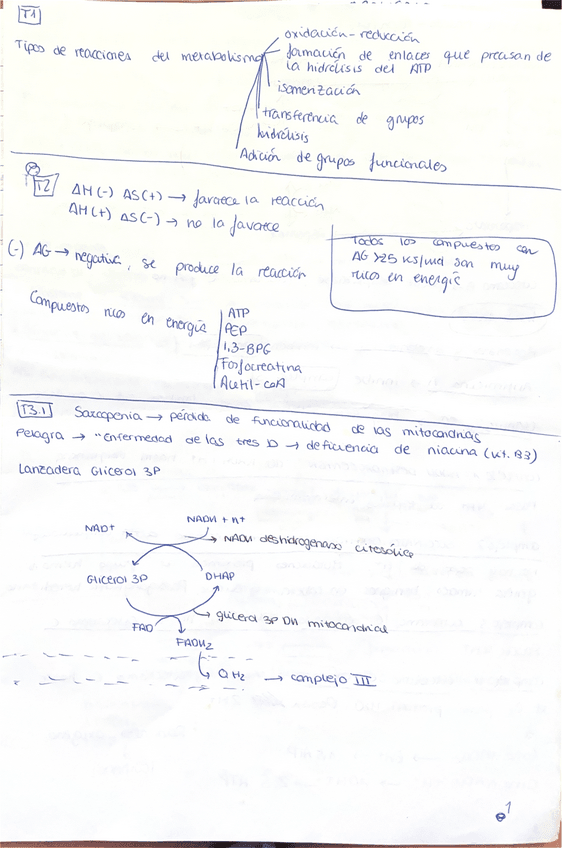 T1
oxidación-reducción
Tipos de reacciones del metabolismo
formación de enlaces que precisan de
la hidrólisis del ATP
isomerización
transferencia de grupos
hidrólisis
Adición de grupos funcionales
T2
ΔH(-) ΔS(+) → favorece la reacción
ΔH(+) ΔS(-) → no la favorece
(-) ΔG → negativa, se produce la reacción
Todos los compuestos con
ΔG >25 KJ/mol son muy
ricos en energía
Compuestos ricos en energía
ATP
PEP
1,3-BPG
Fosfocreatina
Acetil-CoA
T3.1
Sarcopenia → pérdida de funcionalidad de las mitocondrias
Pelagra → "Enfermedad de las tres D → deficiencia de niacina (vit. B3)
Lanzadera Glicerol 3P
NADH + H+
NAD+
→ NADH deshidrogenasa citosólica
Glicerol 3P
DHAP
→ glicerol 3P DH mitocondrial
FAD
FADH2
QH2 → complejo III
1